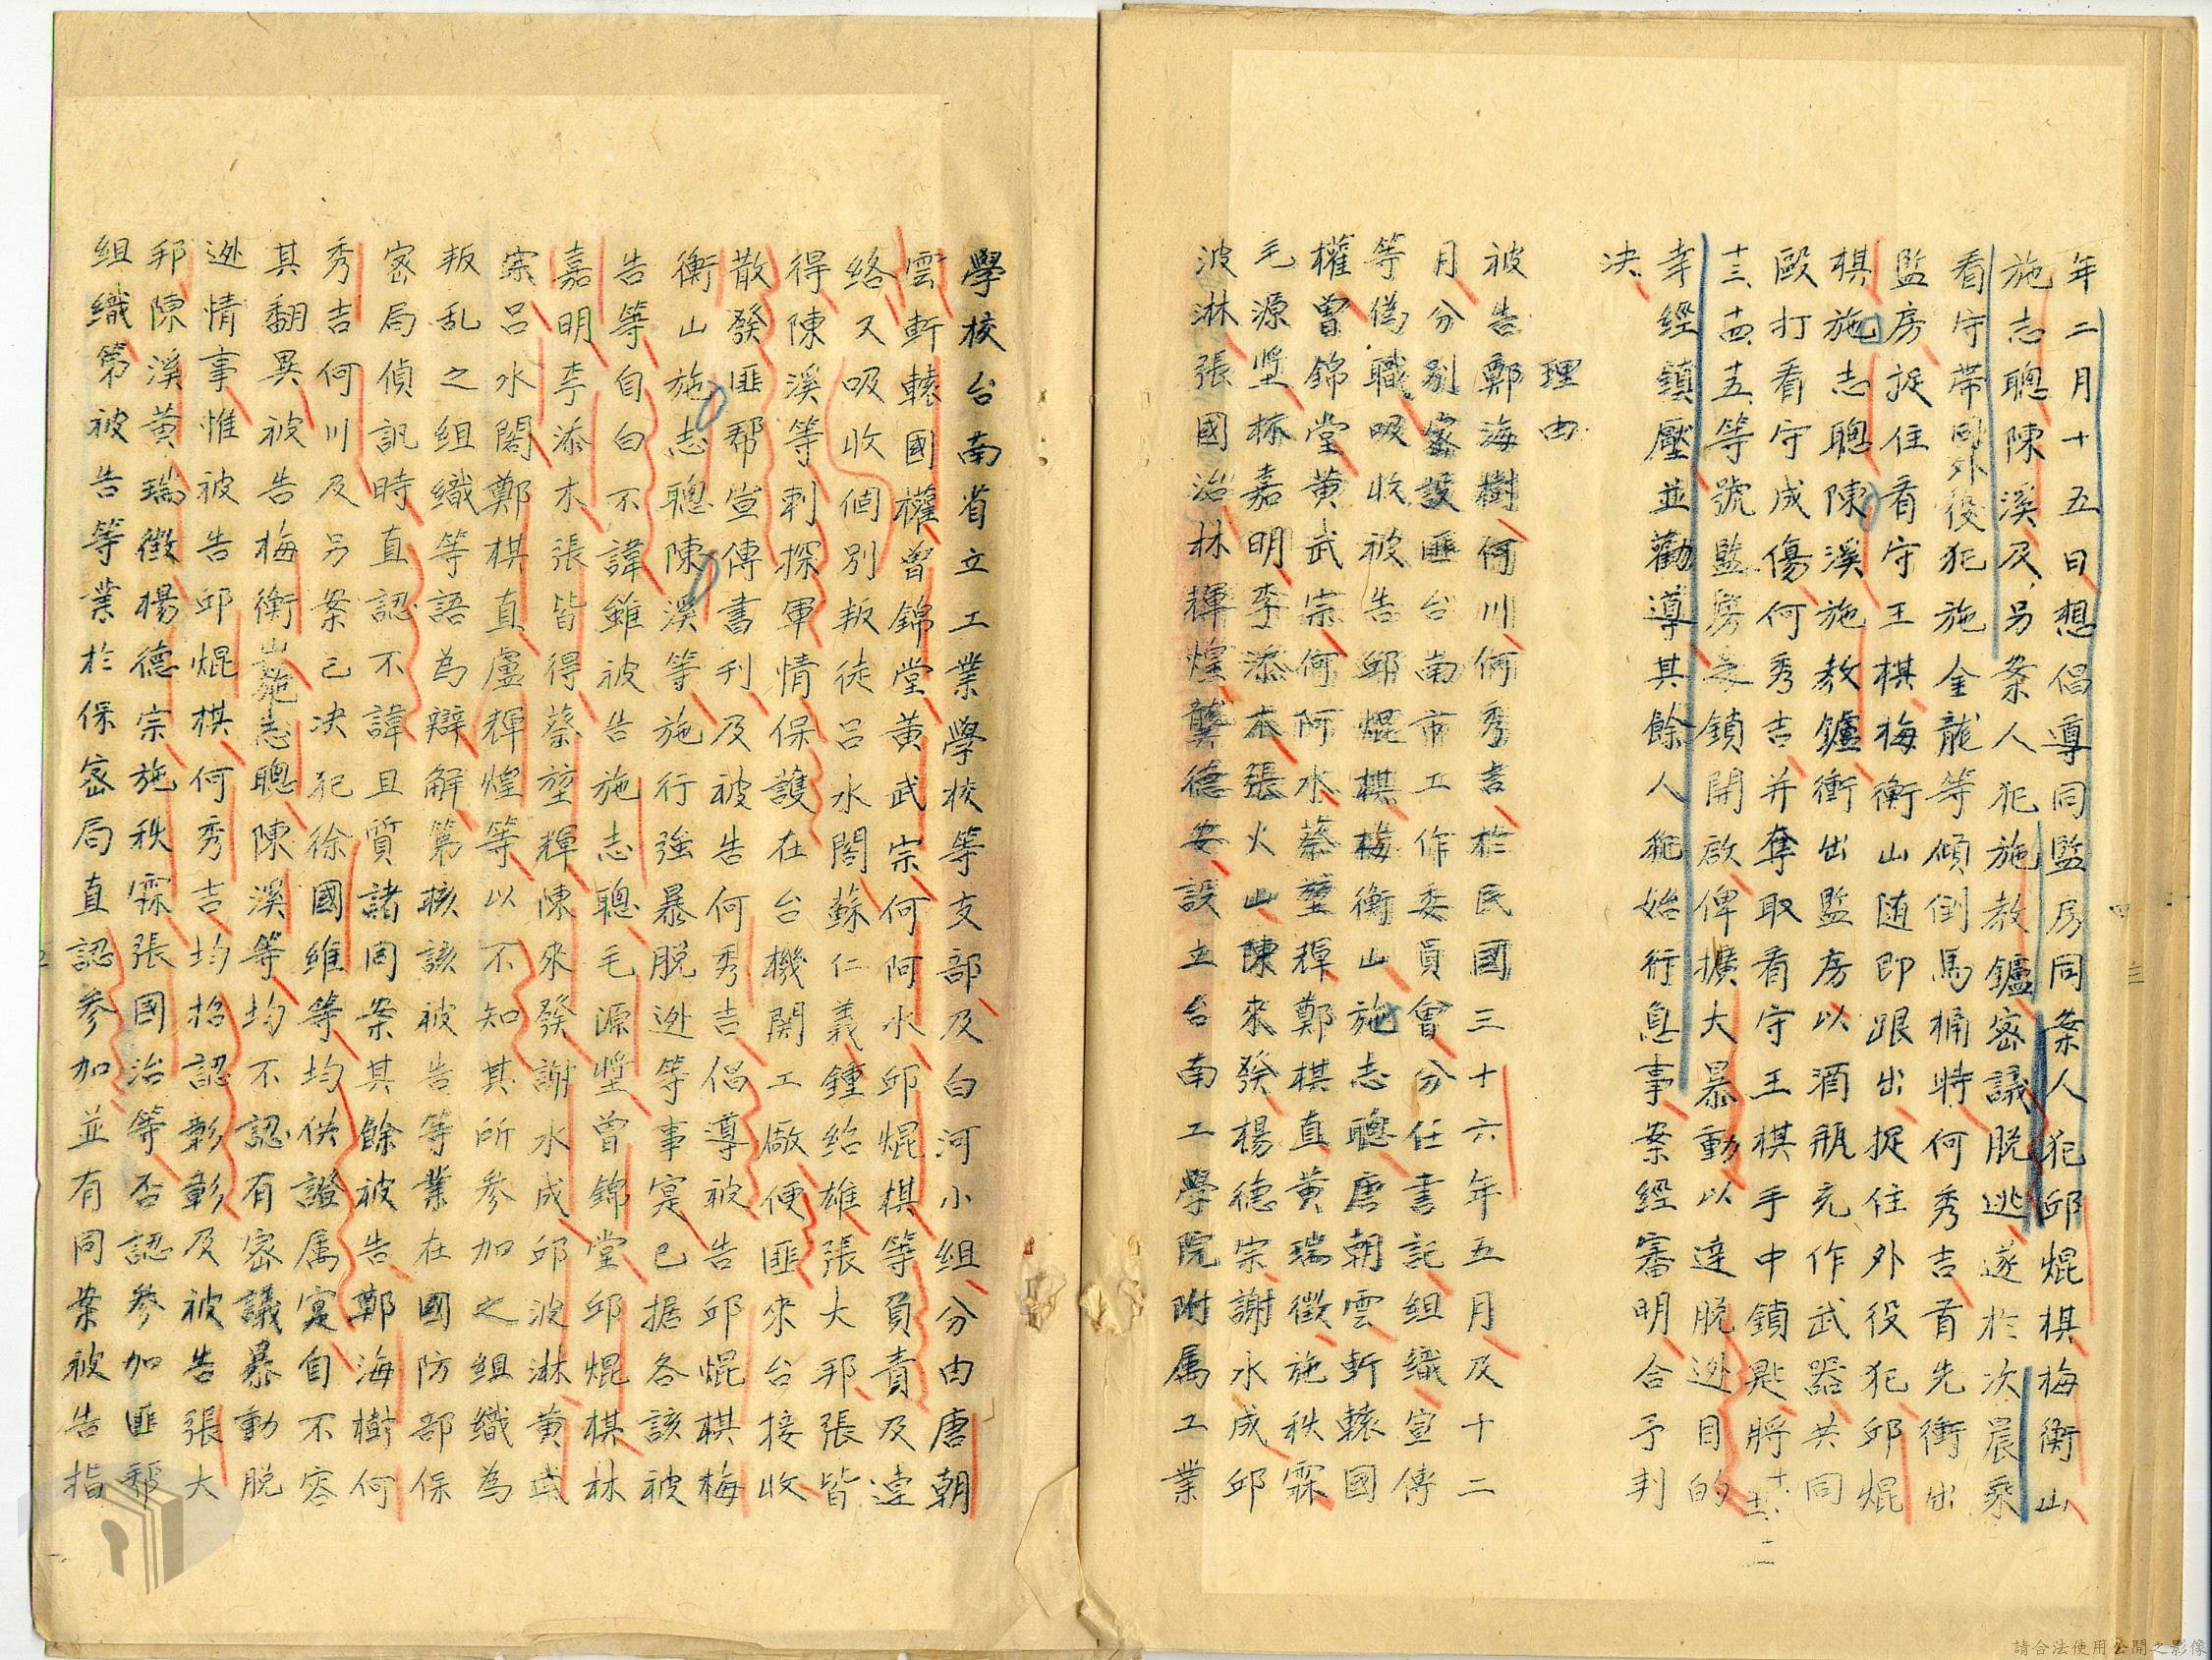 年二月十五日想倡導同監房同案人犯邱焜棋梅衡山
施志聰陳溪及另案人犯施教鑪密議脱逃遂於次晨乘
看守带同外役犯施金龍等傾倒馬桶時何秀吉首先衝出
監房捉住看守王棋梅衡山随即跟出捉住外役犯邱焜
棋施志聰陳溪施教鑪衝出監房以酒瓶充作武器共同
毆打看守成傷何秀吉并奪取看守王棋手中鎖匙將
十三、十四、十五等號監房之鎖開啟俾擴大暴動以達脱逃目的
幸經鎮壓並勸導其餘人犯始行息事案經審明合予判
決
理由
被告鄭海樹何川何秀吉於民國三十六年五月及十二
月分别密設匪台南市工作委員會分任書記組織宣傳
等偽職吸收被告邱焜棋梅衡山施志聰唐朝雲軒轅國
權曾錦堂黄武宗何阿水蔡墾輝鄭棋直黄瑞徵施秩霖
毛源埿林嘉明李添木張火山陳來發楊德宗謝水成邱
波淋張國治林輝煌龔德安設立台南工學院附属工業
學校台南省立工業學校等支部及白河小組分由唐朝
雲軒轅國權曾錦堂黄武宗何阿水邱焜棋等負責及連
络又吸收個别叛徒吕水閣蘇仁義鍾绍雄張大邦張皆
得陳溪等刺探軍情保護在台機関工廠便匪來台接收
散發匪帮宣傳書刊及被告何秀吉倡導被告邱焜棋梅
衡山施志聰陳溪等施行強暴脱逃等事寔已据各該被
告等自白不諱雖被告施志聰毛源埿曾錦堂邱焜棋林
嘉明李添木張皆得蔡墾輝陳來發謝水成邱波淋黄武
宗吕水閣鄭棋直盧輝煌等以不知其所參加之組織為
叛乱之組織等語為辯解第核該被告等業在國防部保
密局偵訊時直認不諱且質諸同案其餘被告鄭海樹何
秀吉何川及另案已决犯徐國維等均供證属寔自不容
其翻異被告梅衡山施志聰陳溪等均不認有密議暴動脱
逃情事惟被告邱焜棋何秀吉均招認彰彰及被告張大
邦陳溪黄瑞徵楊德宗施秩霖張國治等否認參加匪帮
組織第被告等業於保密局直認參加並有同案被告指
請合法使用公開之影像